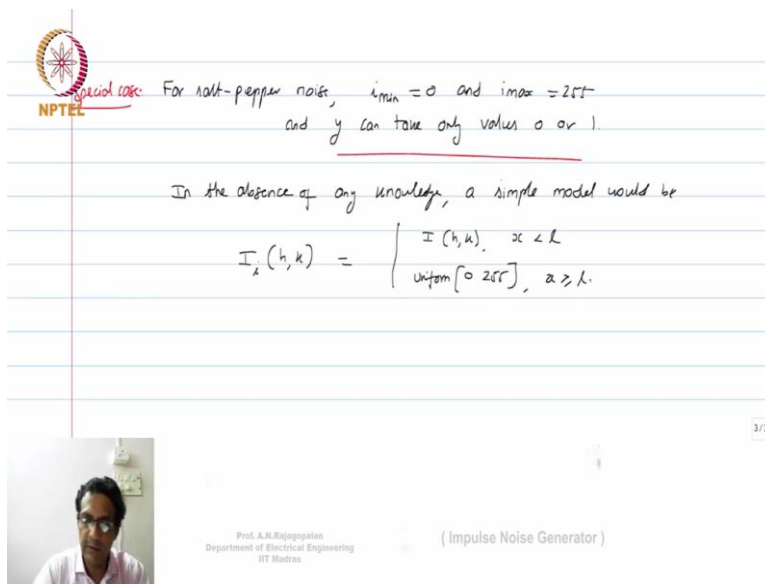 NPTEL
Special case: For salt-pepper noise, i_min = 0 and i_max = 255
and y can take only values 0 or 1.
In the absence of any knowledge, a simple model would be
I_i (h,k) = { I (h,k), x < l
uniform [0 255], x ≥ l.
3/
Prof. A.N.Rajagopalan
Department of Electrical Engineering
IIT Madras
( Impulse Noise Generator )